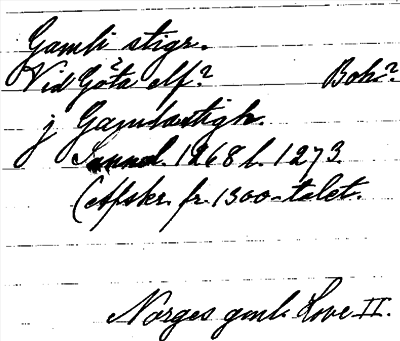 Gamli stigr.
Vid Göta elf? Boh?
j Gamlastigh.
1268 l. 1273.
(Afskr. fr. 1300-talet.
Norges gml. Love II.